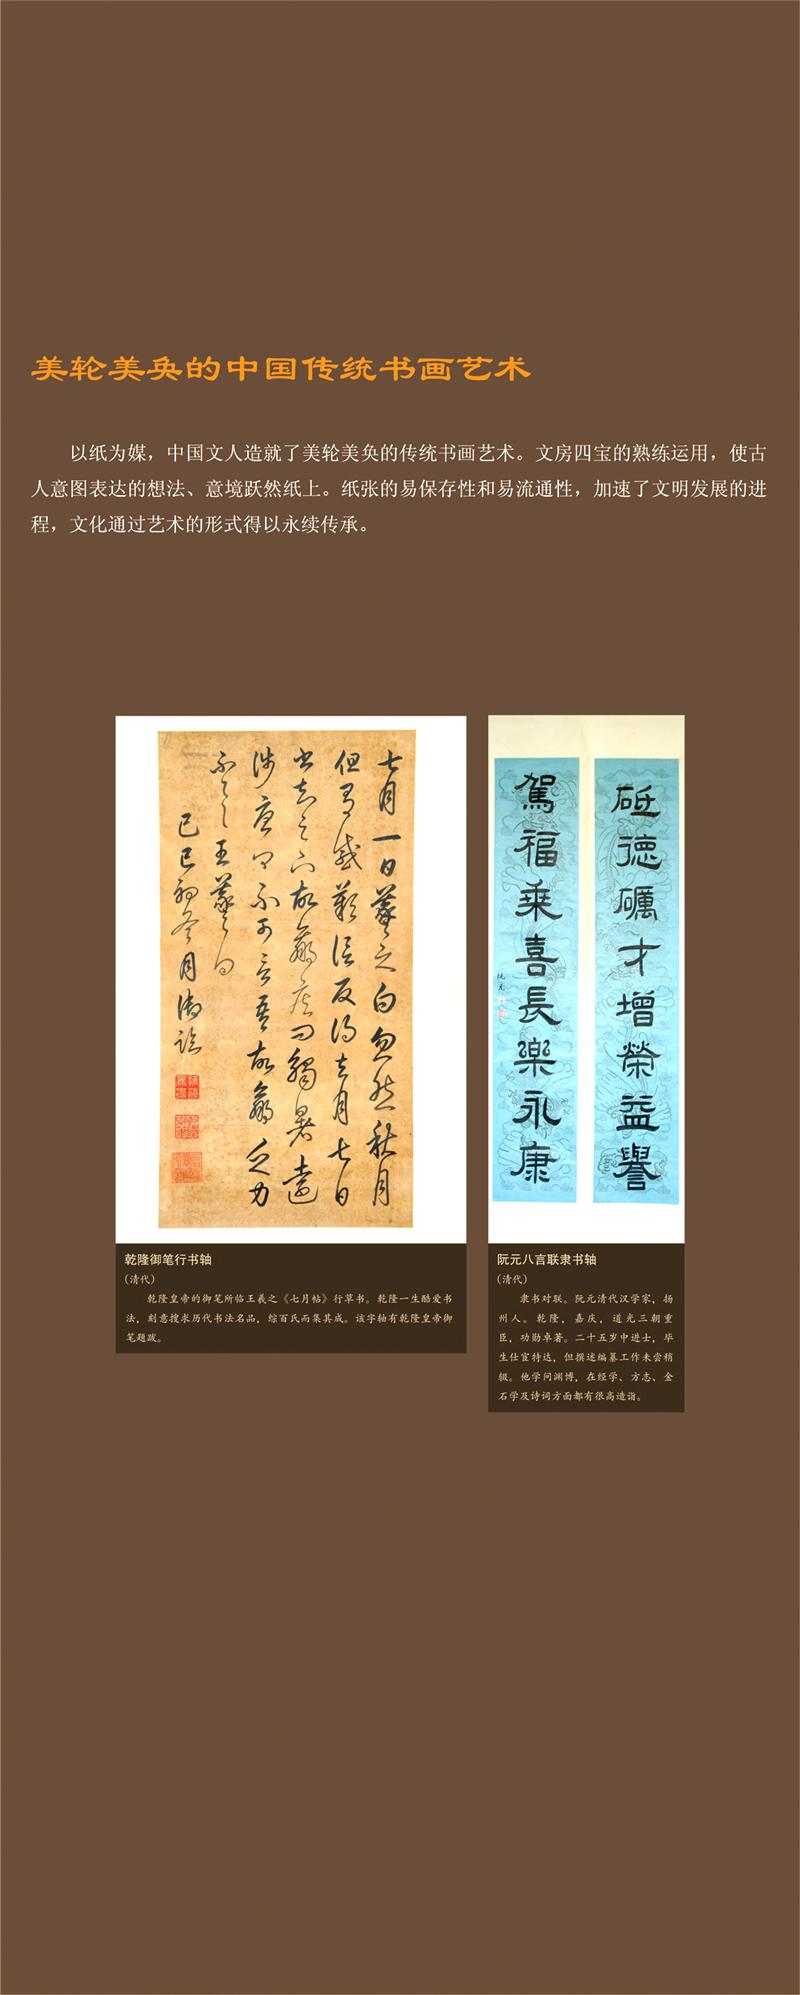 美轮美奂的中国传统书画艺术
以纸为媒，中国文人造就了美轮美奂的传统书画艺术。文房四宝的熟练运用，使古
人意图表达的想法、意境跃然纸上。纸张的易保存性和易流通性，加速了文明发展的进
程，文化通过艺术的形式得以永续传承。
七月一日羲之白忽然秋月
但有感叹信反得去月七日
书知足下故羸疾问触暑远
涉疲里不可言吾故羸乏力
不一一王羲之白
己巳初冬月御临
砥德礪才增榮益譽
駕福乘喜長樂永康
阮元
乾隆御笔行书轴
（清代）
乾隆皇帝的御笔所临王羲之《七月帖》行草书。乾隆一生酷爱书
法，刻意搜求历代书法名品，综百氏而集其成。该字轴有乾隆皇帝御
笔题跋。
阮元八言联隶书轴
（清代）
隶书对联。阮元清代汉学家，扬
州人。乾隆，嘉庆，道光三朝重
臣，功勋卓著。二十五岁中进士，毕
生仕宦特达，但撰述编纂工作未尝稍
辍。他学问渊博，在经学、方志、金
石学及诗词方面都有很高造诣。